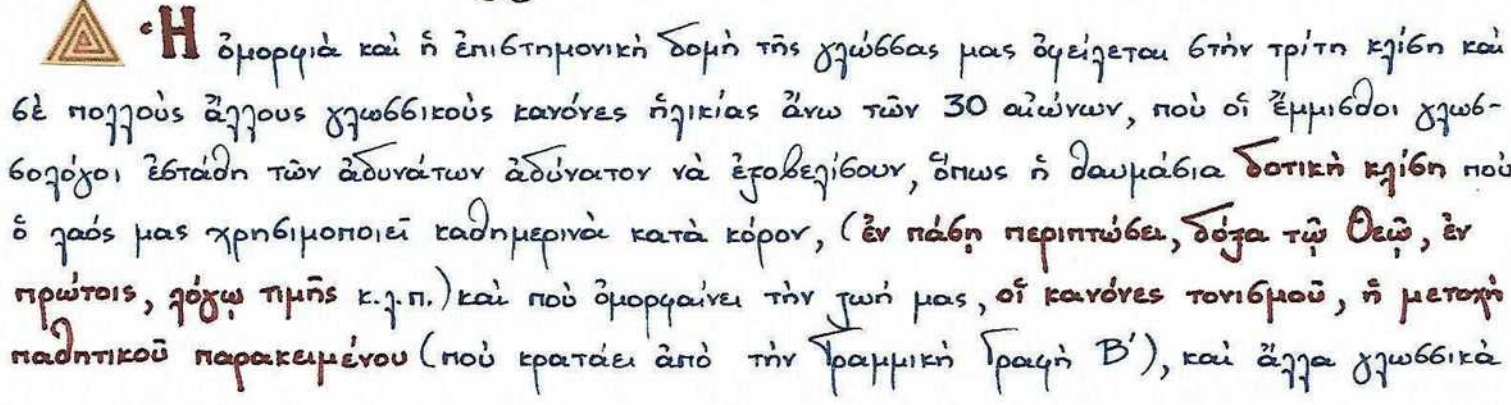 Ἡ ὀμορφιὰ καὶ ἡ ἐπιστημονικὴ δομὴ τῆς γλώσσας μας ὀφείλεται στὴν τρίτη κλίση καὶ
σὲ πολλοὺς ἄλλους γλωσσικοὺς κανόνες ἡλικίας ἄνω τῶν 30 αἰώνων, ποὺ οἱ ἔμμισθοι γλωσ-
σολόγοι ἐστάθη τῶν ἀδυνάτων ἀδύνατον νὰ ἐξοβελίσουν, ὅπως ἡ θαυμάσια δοτικὴ κλίση ποὺ
ὁ λαός μας χρησιμοποιεῖ καθημερινὰ κατὰ κόρον, (ἐν πάσῃ περιπτώσει, δόξα τῷ Θεῷ, ἐν
πρώτοις, λόγῳ τιμῆς κ.λ.π.) καὶ ποὺ ὀμορφαίνει τὴν ζωή μας, οἱ κανόνες τονισμοῦ, ἡ μετοχὴ
παθητικοῦ παρακειμένου (ποὺ κρατάει ἀπὸ τὴν Γραμμικὴ Γραφὴ Β'), καὶ ἄλλα γλωσσικὰ